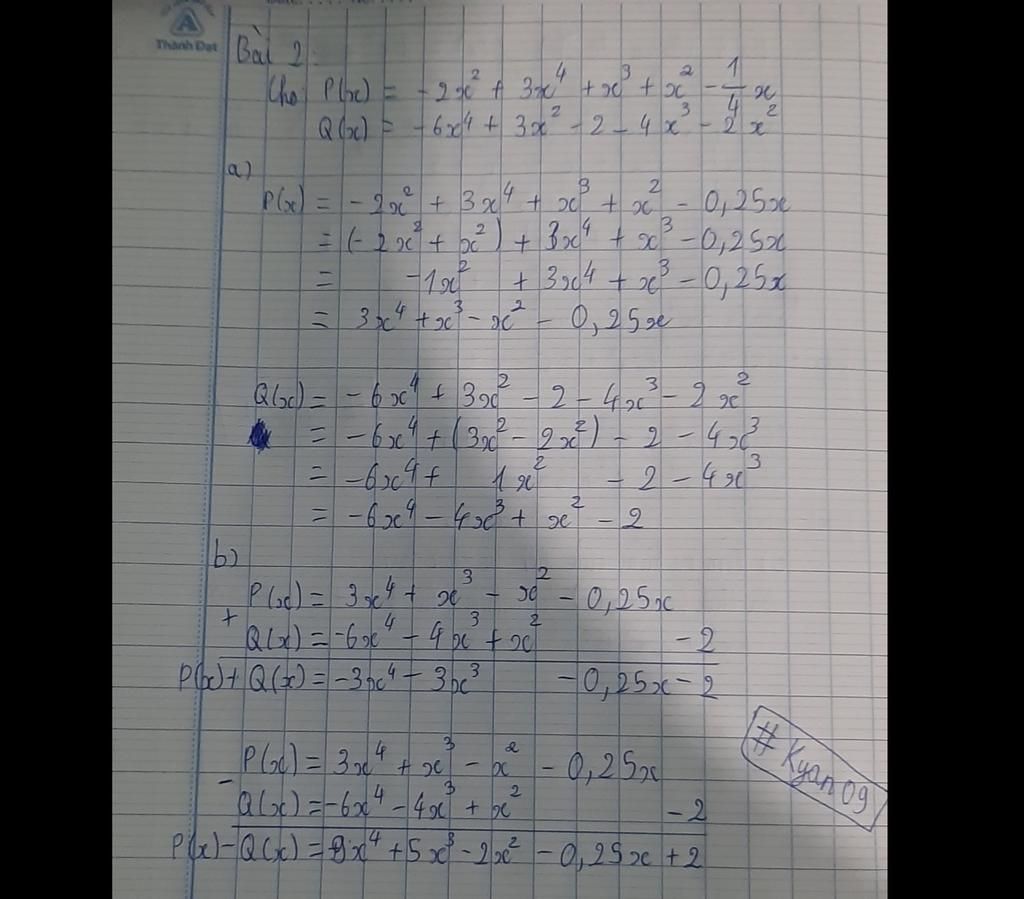 Thành Đạt
Bài 2:
Cho P(x) = -2x² + 3x⁴ + x³ + x² - 1/4 x
Q(x) = -6x⁴ + 3x² - 2 - 4x³ - 2x²
a)
P(x) = -2x² + 3x⁴ + x³ + x² - 0,25x
= (-2x² + x²) + 3x⁴ + x³ - 0,25x
= -1x² + 3x⁴ + x³ - 0,25x
= 3x⁴ + x³ - x² - 0,25x
Q(x) = -6x⁴ + 3x² - 2 - 4x³ - 2x²
= -6x⁴ + (3x² - 2x²) - 2 - 4x³
= -6x⁴ + 1x² - 2 - 4x³
= -6x⁴ - 4x³ + x² - 2
b)
P(x) = 3x⁴ + x³ - x² - 0,25x
+
Q(x) = -6x⁴ - 4x³ + x² - 2
P(x) + Q(x) = -3x⁴ - 3x³ - 0,25x - 2
P(x) = 3x⁴ + x³ - x² - 0,25x
-
Q(x) = -6x⁴ - 4x³ + x² - 2
P(x) - Q(x) = 9x⁴ + 5x³ - 2x² - 0,25x + 2
#Kyan09